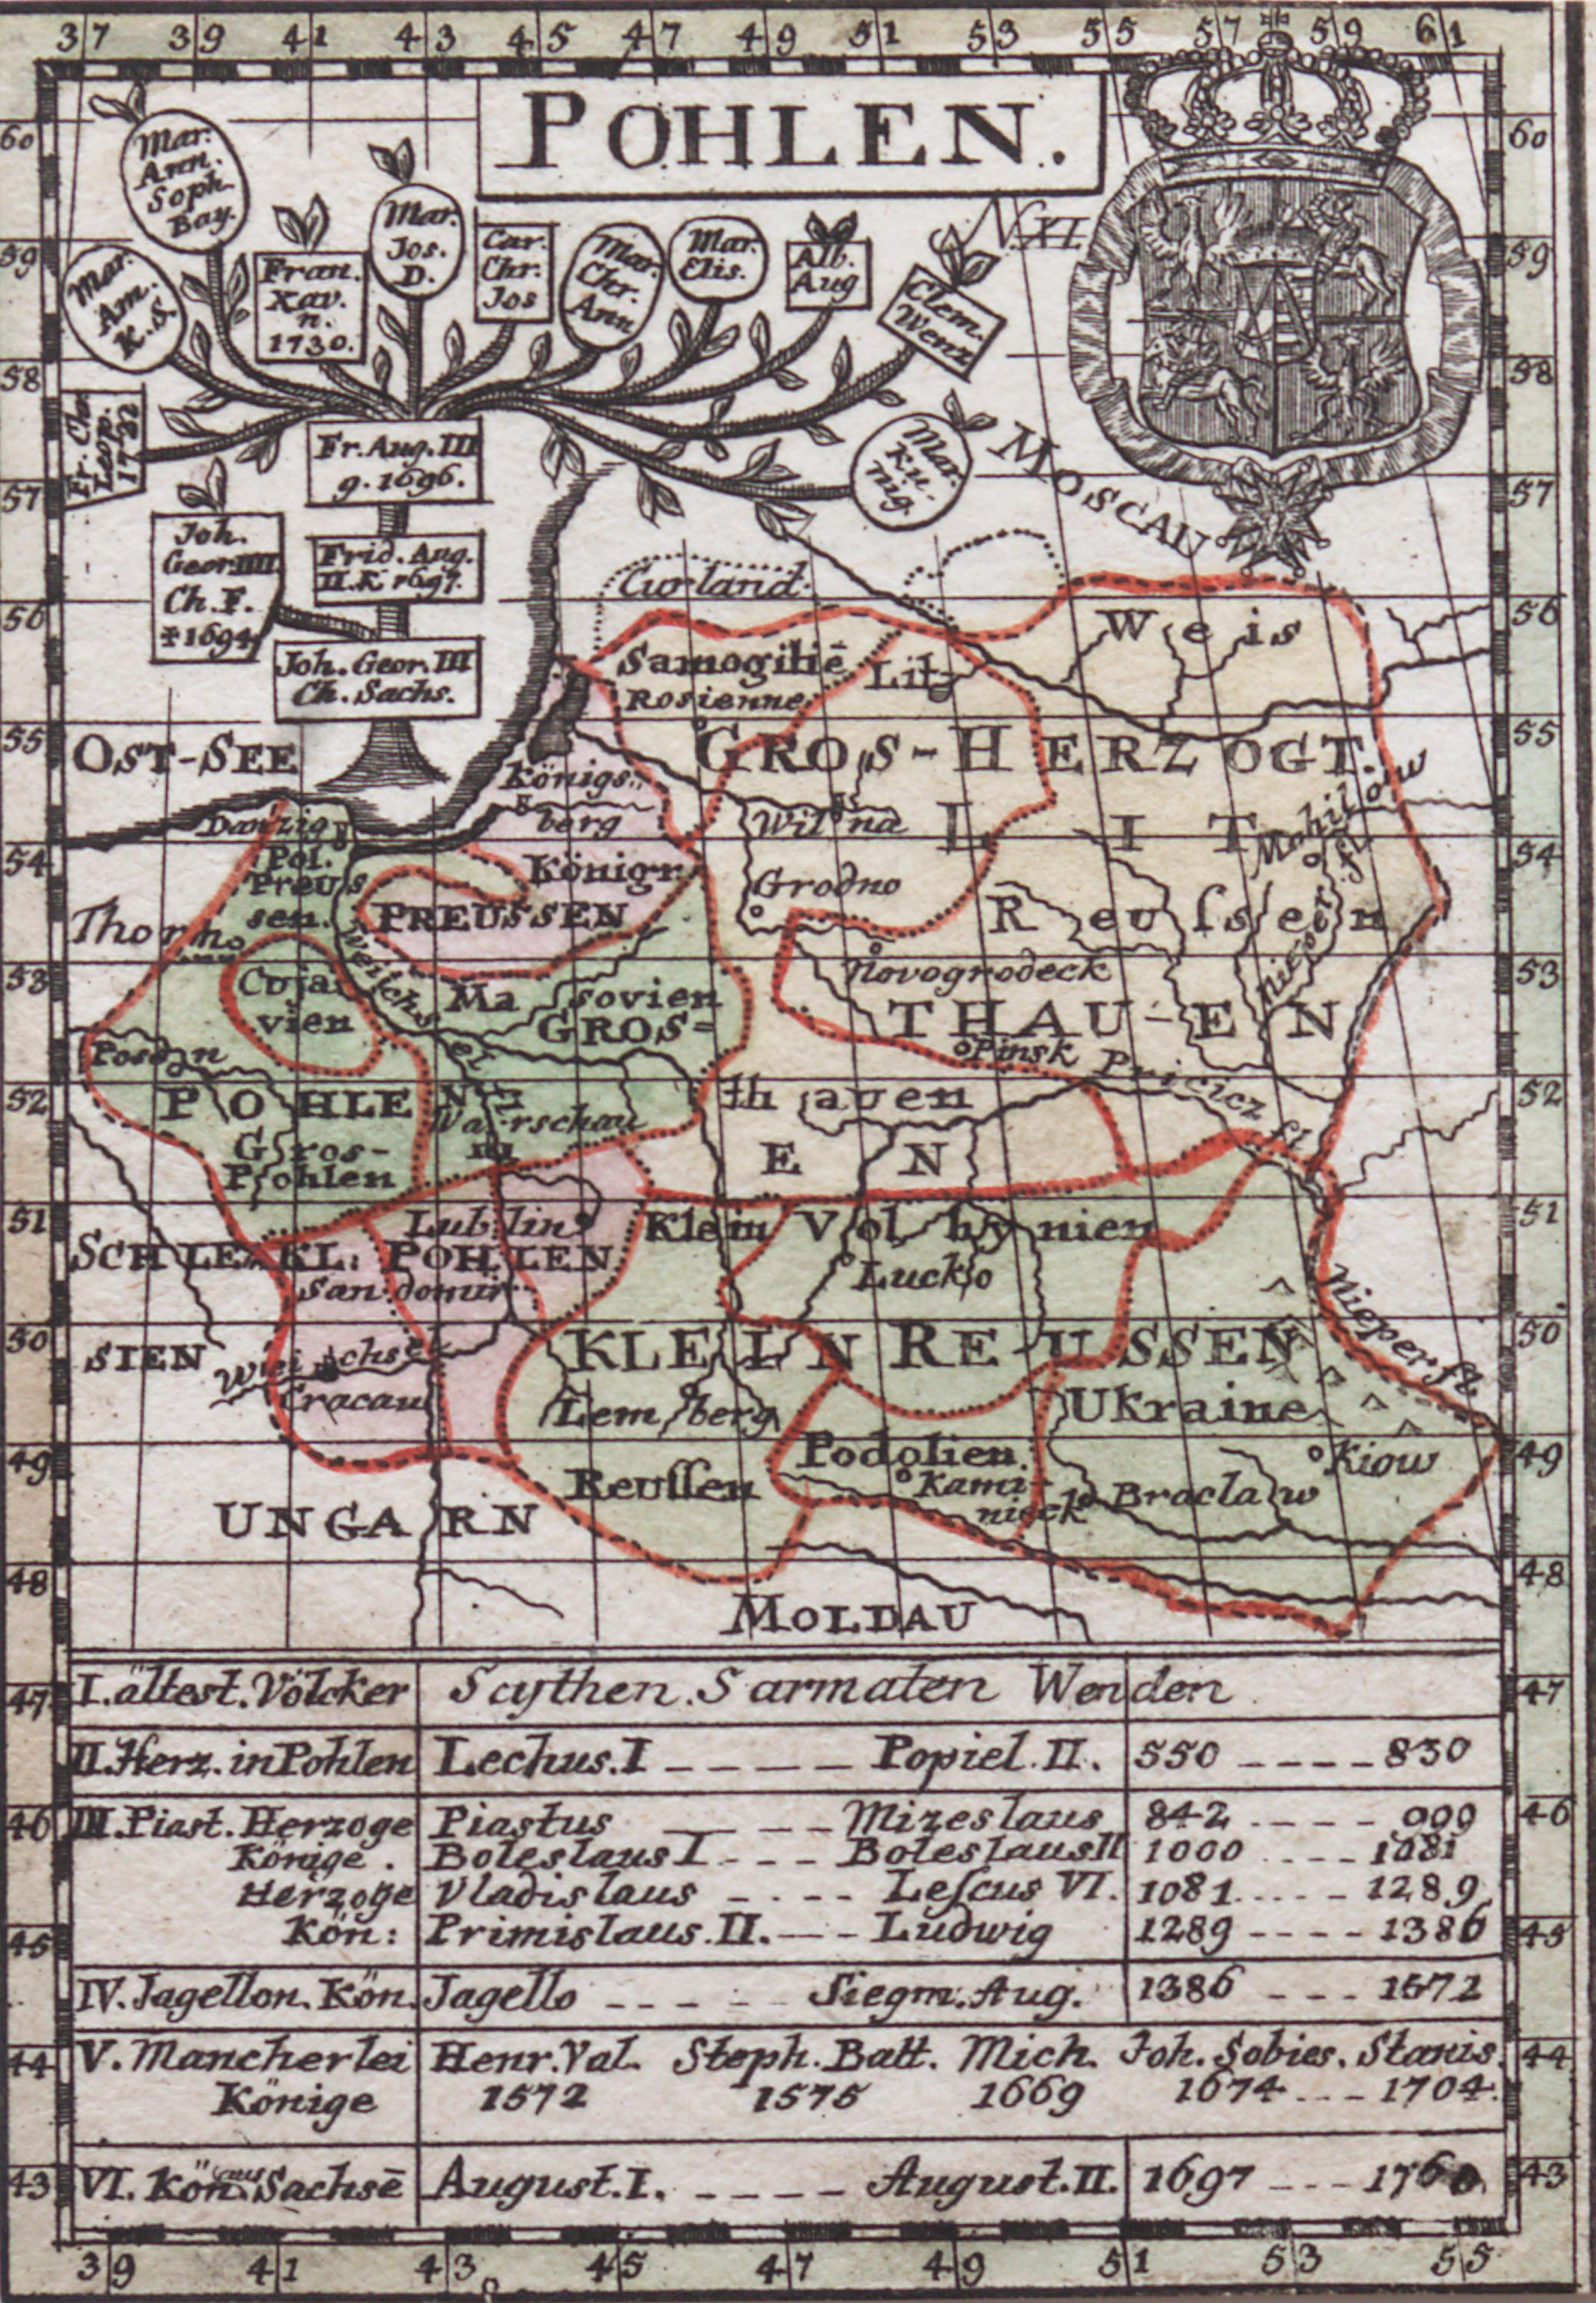 37 39 41 43 45 47 49 51 53 55 57 59 61
POHLEN.
N.XI.
Mar. Ann. Soph. Bay.
Mar. Am. K.S.
Fran. Xav. n. 1730.
Mar. Jos. D.
Car. Chr. Jos
Mar. Chr. Ann
Mar. Elis.
Alb. Aug
Clem. Wenz
Mar.
Leop. 1722
Fr. Aug. III
g. 1696.
Joh.
Geor. IIII
Ch. F.
✝1694
Frid. Aug.
II. K 1697.
Joh. Geor. III
Ch. Sachs.
MOSCAU
Curland
Weis
Samogitiē
Rosienne
Litz
OST-SEE
GROS-HERZOGT.
Königs-
berg
Danzig
Wilna
LIT
Mohilow
Pol.
Preus
sen.
Königr
PREUSSEN
Grodno
Reussen
Nieper fl.
Thorn
Weichsel
Novogrodeck
Cujavien
Masovien
GROS-
THAU-EN
Posen
Pinsk
Pricicz fl.
POHLEN
Warschau
thauen
Gros-
Pohlen
EN
Lublin
Klein
Volhynien
SCHLESIEN
KL. POHLEN
Sandomir
Lucko
Nieper fl.
Weichsel
KLEIN REUSSEN
Cracau
Lemberg
Ukraine
Podolien.
Kiow
Reussen
Kaminieck
Braclaw
UNGARN
MOLDAU
I. ältest. Völcker Scythen. Sarmaten Wenden
II. Herz. in Pohlen Lechus. I ---- Popiel. II. 550 ---- 830
III. Piast. Herzoge Piastus ---- Mizeslaus 842 ---- 999
Könige. Boleslaus I --- Boleslaus II 1000 ---- 1081
Herzoge Vladislaus ---- Lescus VI. 1081 ---- 1289
Kön: Primislaus. II. --- Ludwig 1289 ---- 1386
IV. Jagellon. Kön. Jagello ---- Siegm. Aug. 1386 --- 1572
V. Mancherlei Henr. Val. Steph. Batt. Mich. Joh. Sobies. Stanis.
Könige 1572 1575 1669 1674 --- 1704.
VI. Kön. aus Sachsē August. I. ---- August. II. 1697 --- 1760
60 59 58 57 56 55 54 53 52 51 50 49 48 47 46 45 44 43
60 59 58 57 56 55 54 53 52 51 50 49 48 47 46 45 44 43
39 41 43 45 47 49 51 53 55